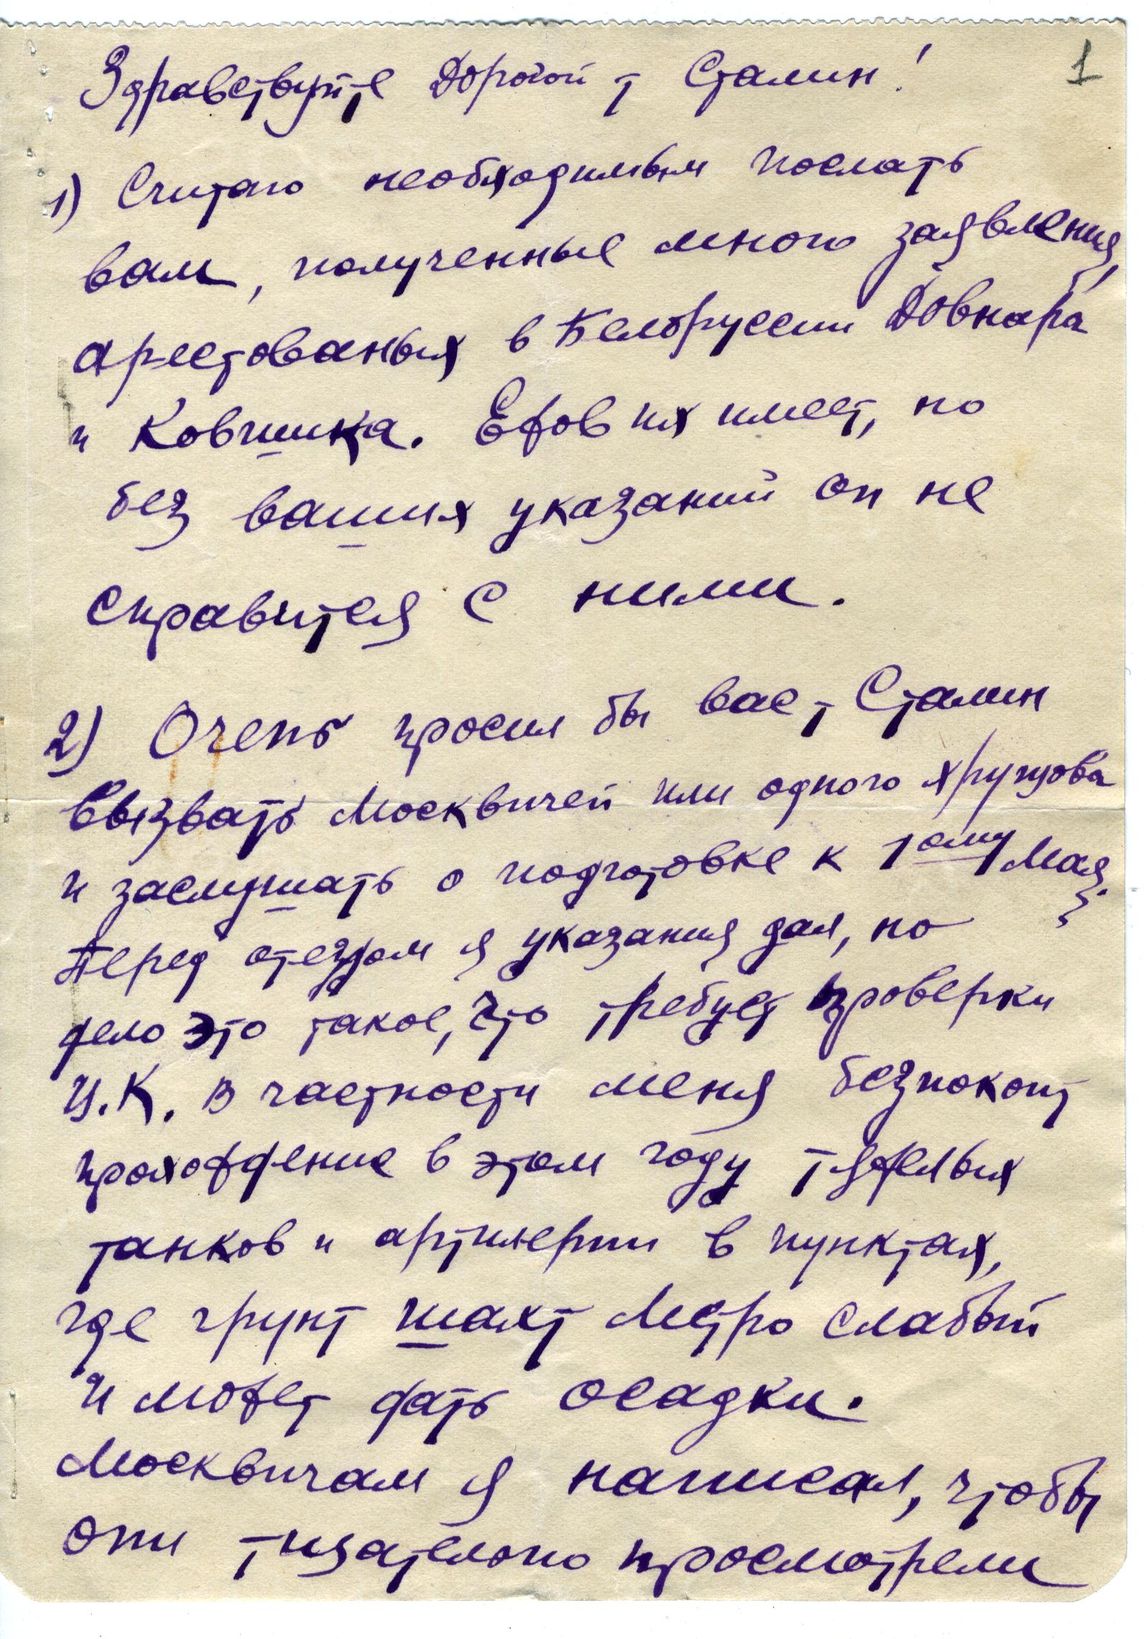 1
Здравствуйте Дорогой т Сталин!
1) Считаю необходимым послать
вам, полученные мною заявления,
арестованых в Белоруссии Довнара
и Ковшика. Ежов их имеет, но
без ваших указаний он не
справится с ними.
2) Очень просил бы вас т Сталин
вызвать Москвичей или одного Хрущова
и заслушать о подготовке к 1ому Мая.
Перед отездом я указания дал, но
дело это такое, что требует проверки
Ц.К. В частности меня безпокоит
прохождение в этом году тяжелых
танков и артилерии в пунктах,
где грунт шахт Метро слабый
и может дать осадки.
Москвичам я написал, чтобы
они тщателоно просмотрели